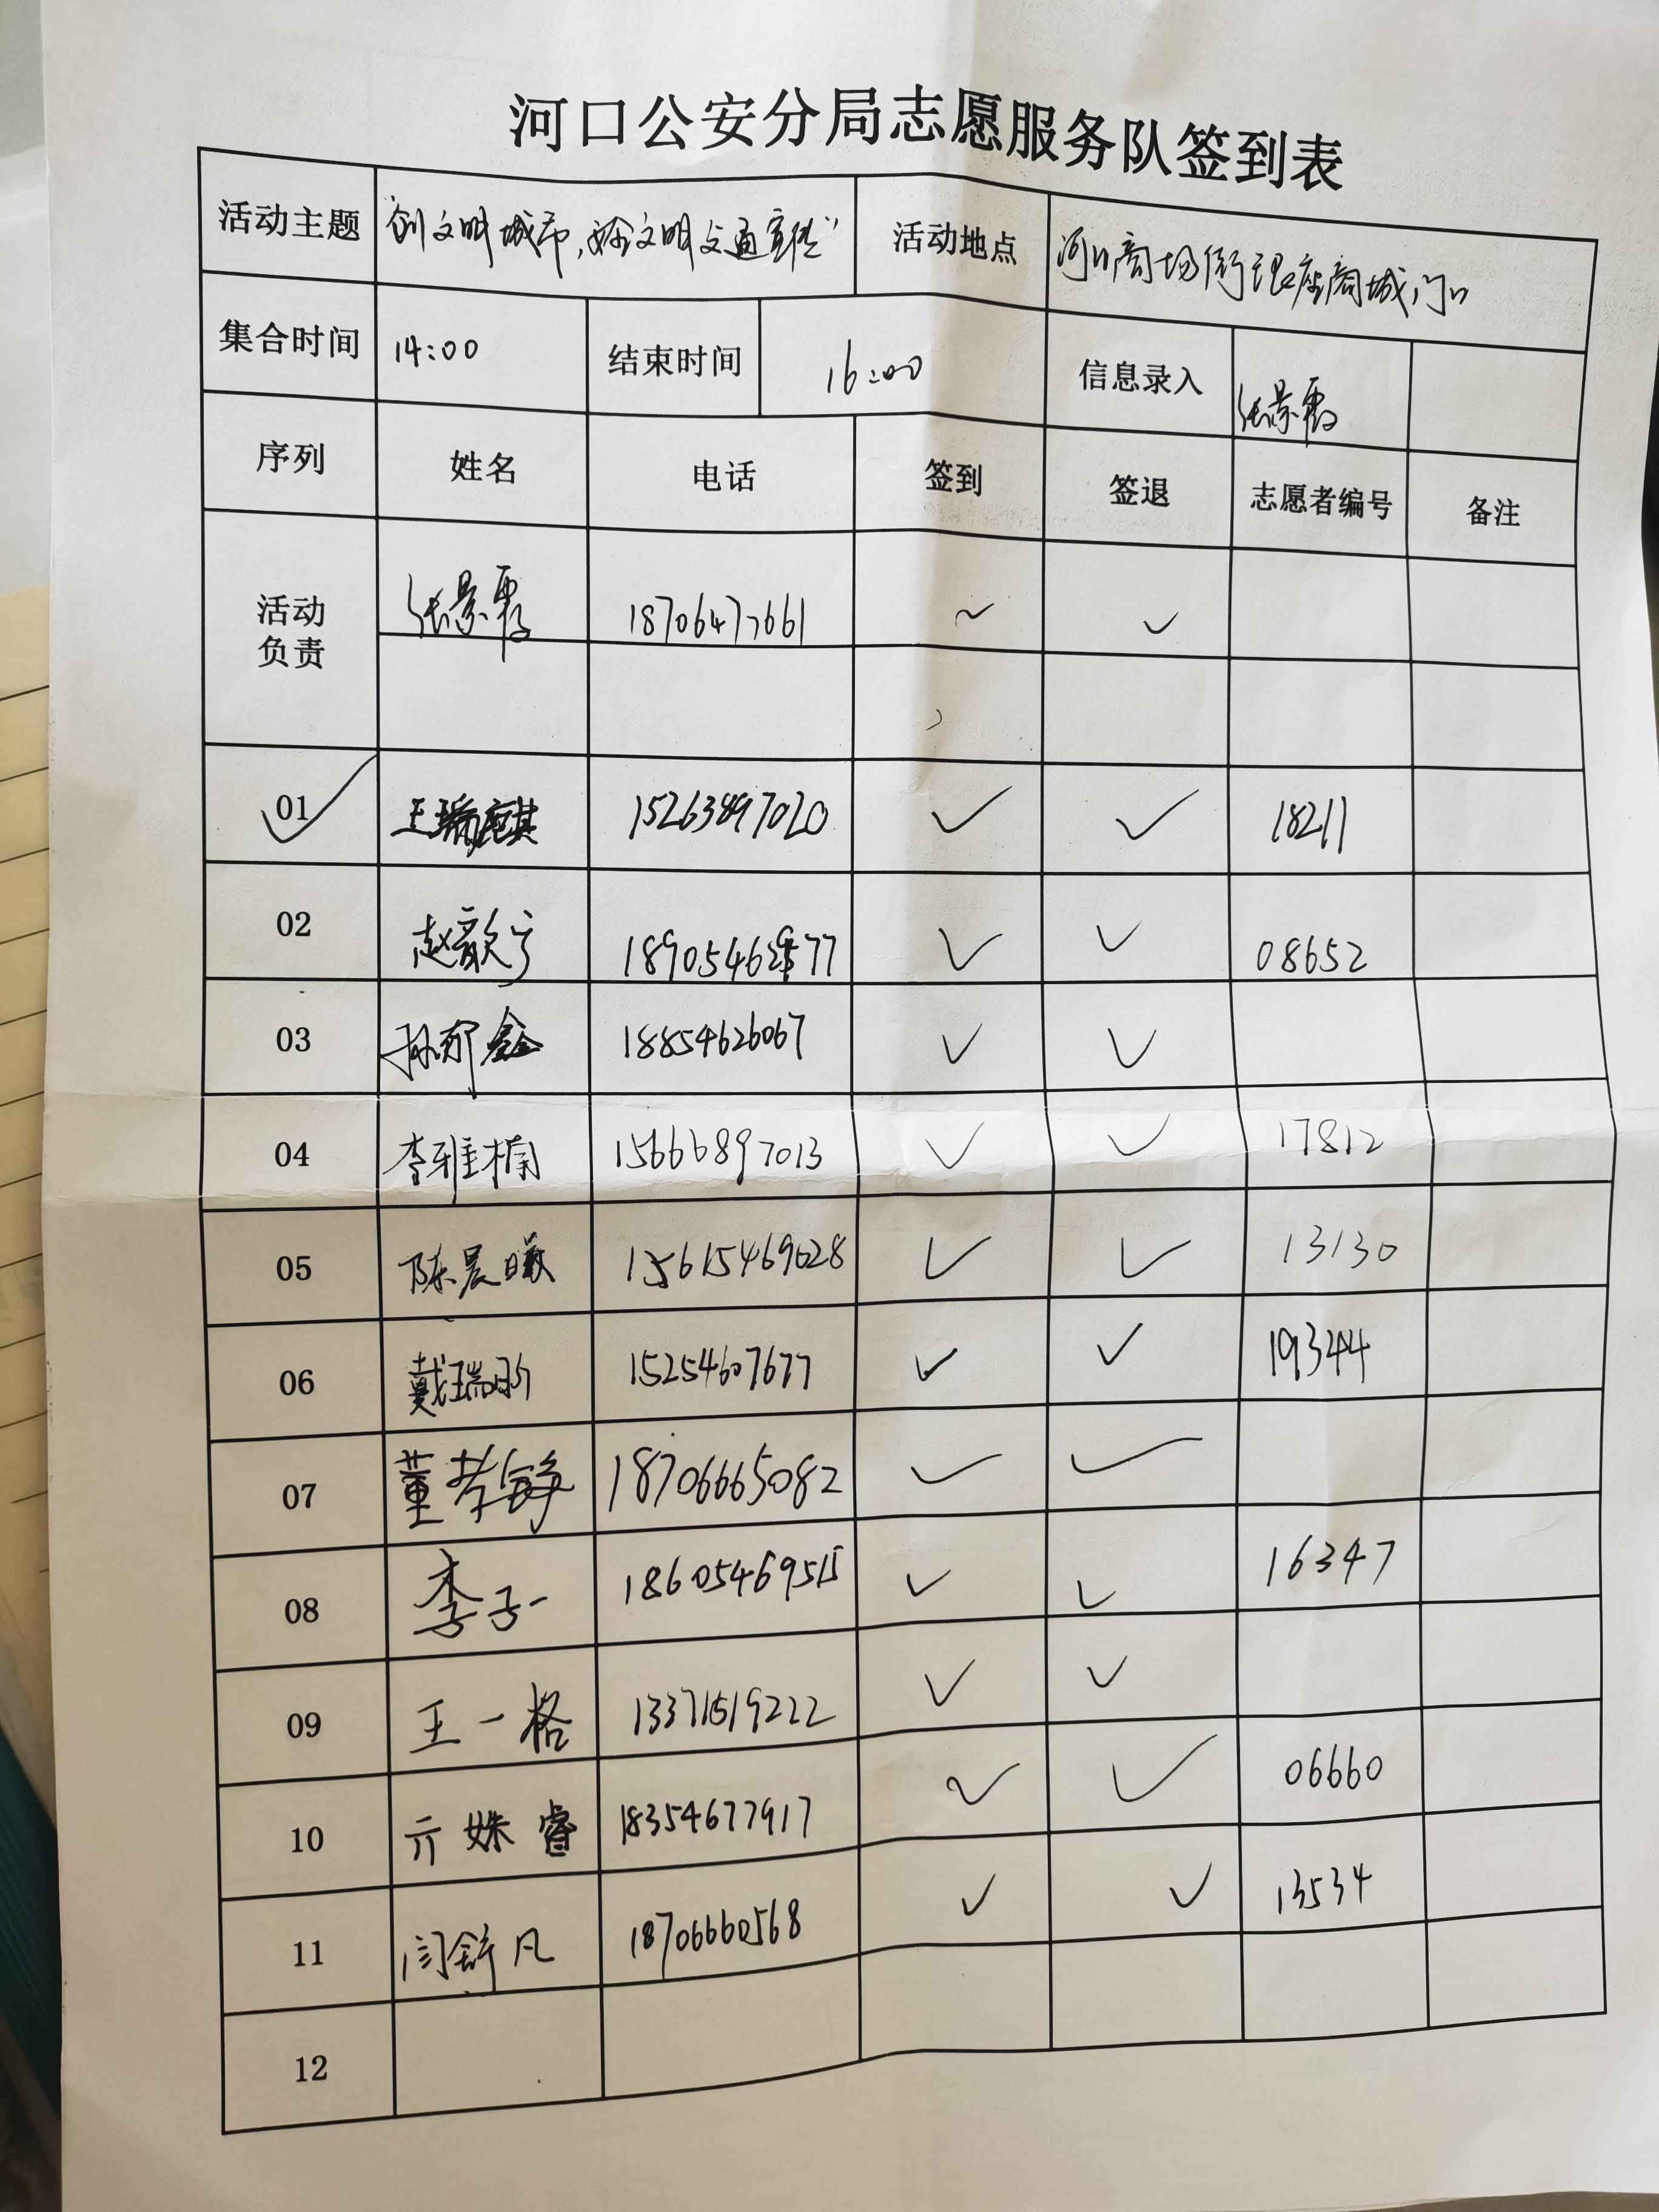 河口公安分局志愿服务队签到表
活动主题 创文明城市,文明交通宣传" 活动地点 河口商场街银座商城门口
集合时间 14:00 结束时间 16:00 信息录入 张景霞
序列 姓名 电话 签到 签退 志愿者编号 备注
活动负责 张景霞 18706477661 ✓ ✓
01 ✓ 王瑞麒 15263897020 ✓ ✓ 18211
02 赵歆宁 ✓ ✓ 08652
03 孙郁鑫 18854626067 ✓ ✓
04 李雅楠 15666897013 ✓ ✓ 17812
05 陈晨曦 15615469028 ✓ ✓ 13130
06 戴瑞昕 15254607677 ✓ ✓ 19344
07 董 18706665082 ✓ ✓
08 李子一 18605469515 ✓ ✓ 16347
09 王一格 13371519222 ✓ ✓
10 亓姝睿 18354677917 ✓ ✓ 06660
11 闫舒凡 18706660568 ✓ ✓ 13534
12